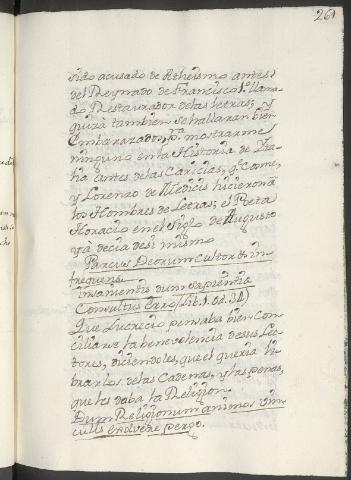 261
sido acusado de Atheismo antes
del Reynado de Francisco 1.º llama-
do Restaurador de las letras; y
quizà tambien se hallaran bien
embarazados, pª. mostrarme
ninguno en la Historia de Ita-
lia antes de las Caricias, qe. Come
y Lorenzo de Medicis hicieron à
los Hombres de Letras; el Poeta
Horacio en el Siglo de Augusto
yà decia de si mismo
Parcus Deorum cultor et in
frequens
insanientis dum sapientia
Consultus erro (Lib. 1. od. 34)
Que Lucrecio pensaba bien con
ciliarse la benevolencia de sus Lec
tores, diciendoles, que el queria li
brarlos de las Cadenas, y las penas,
que les daba la Religion.
Dum Religionum animos vin
culis exolvere pergo.